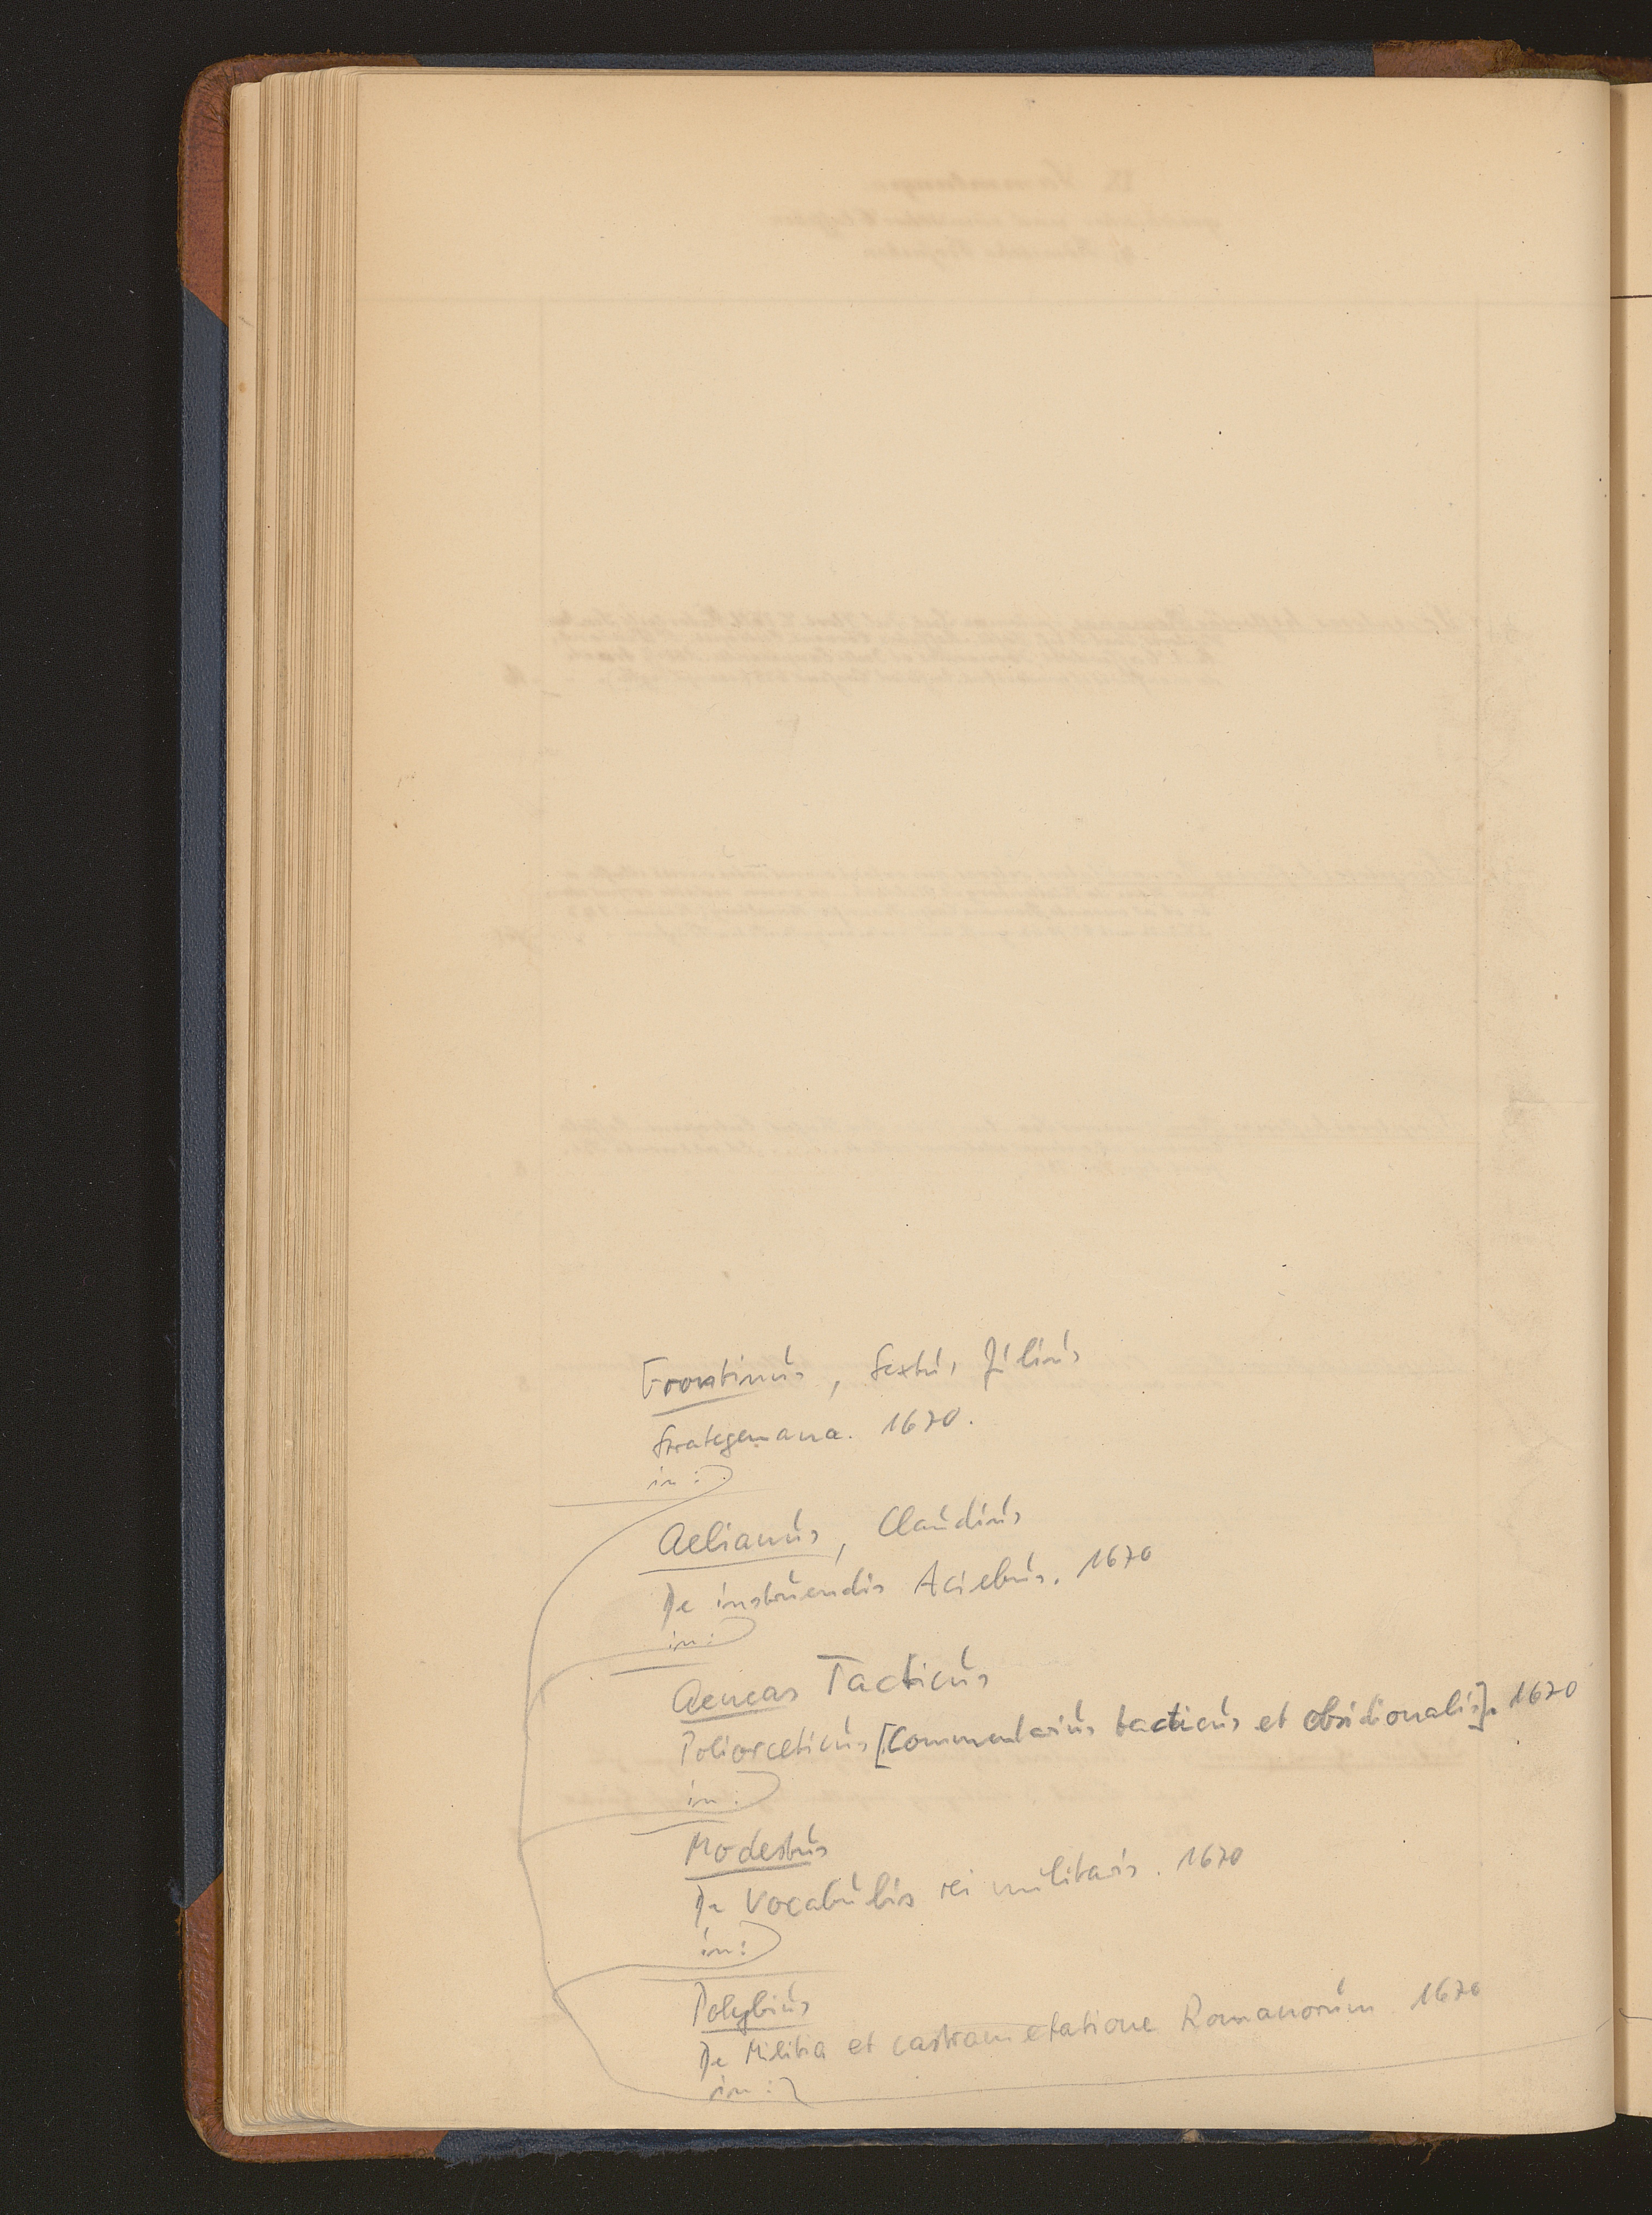 Frontinus, Sextus Julius
Strategemana. 1670.
in:
Aelianus, Claudius
De instruendis Aciebus. 1670
in:
Aeneas Tacticus
Poliorceticus [Commentarius tacticus et obsidionalis]. 1670
in:
Modestus
De Vocabulis rei militaris. 1670
in:
Polybius
De Militia et castrametatione Romanorum 1670
in: